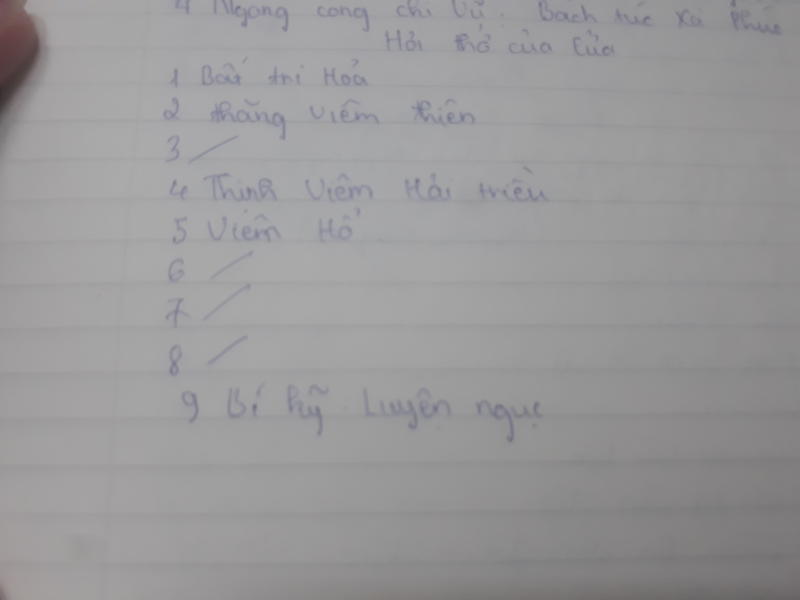 4 Ngang cong chi Vũ. Bách túc Xà Phúc
Hỏi thở của Lửa
1 Bất tri Hoả
2 thăng viêm thiên
3 /
4 Thịnh Viêm Hải triều
5 Viêm Hổ.
6 /
7 /
8 /
9 Bí kỹ. Luyện ngục